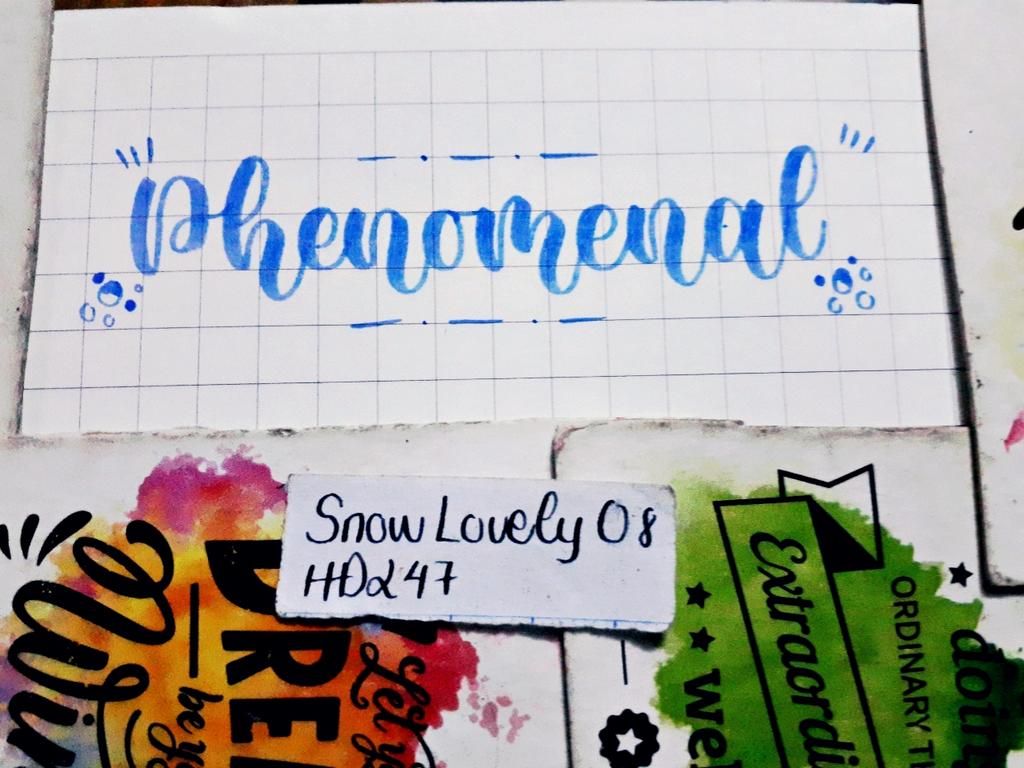 Phenomenal
Snow Lovely 08
HD247
DRE
be yo
Let y
Extraordi
ORDINARY T
doin
we